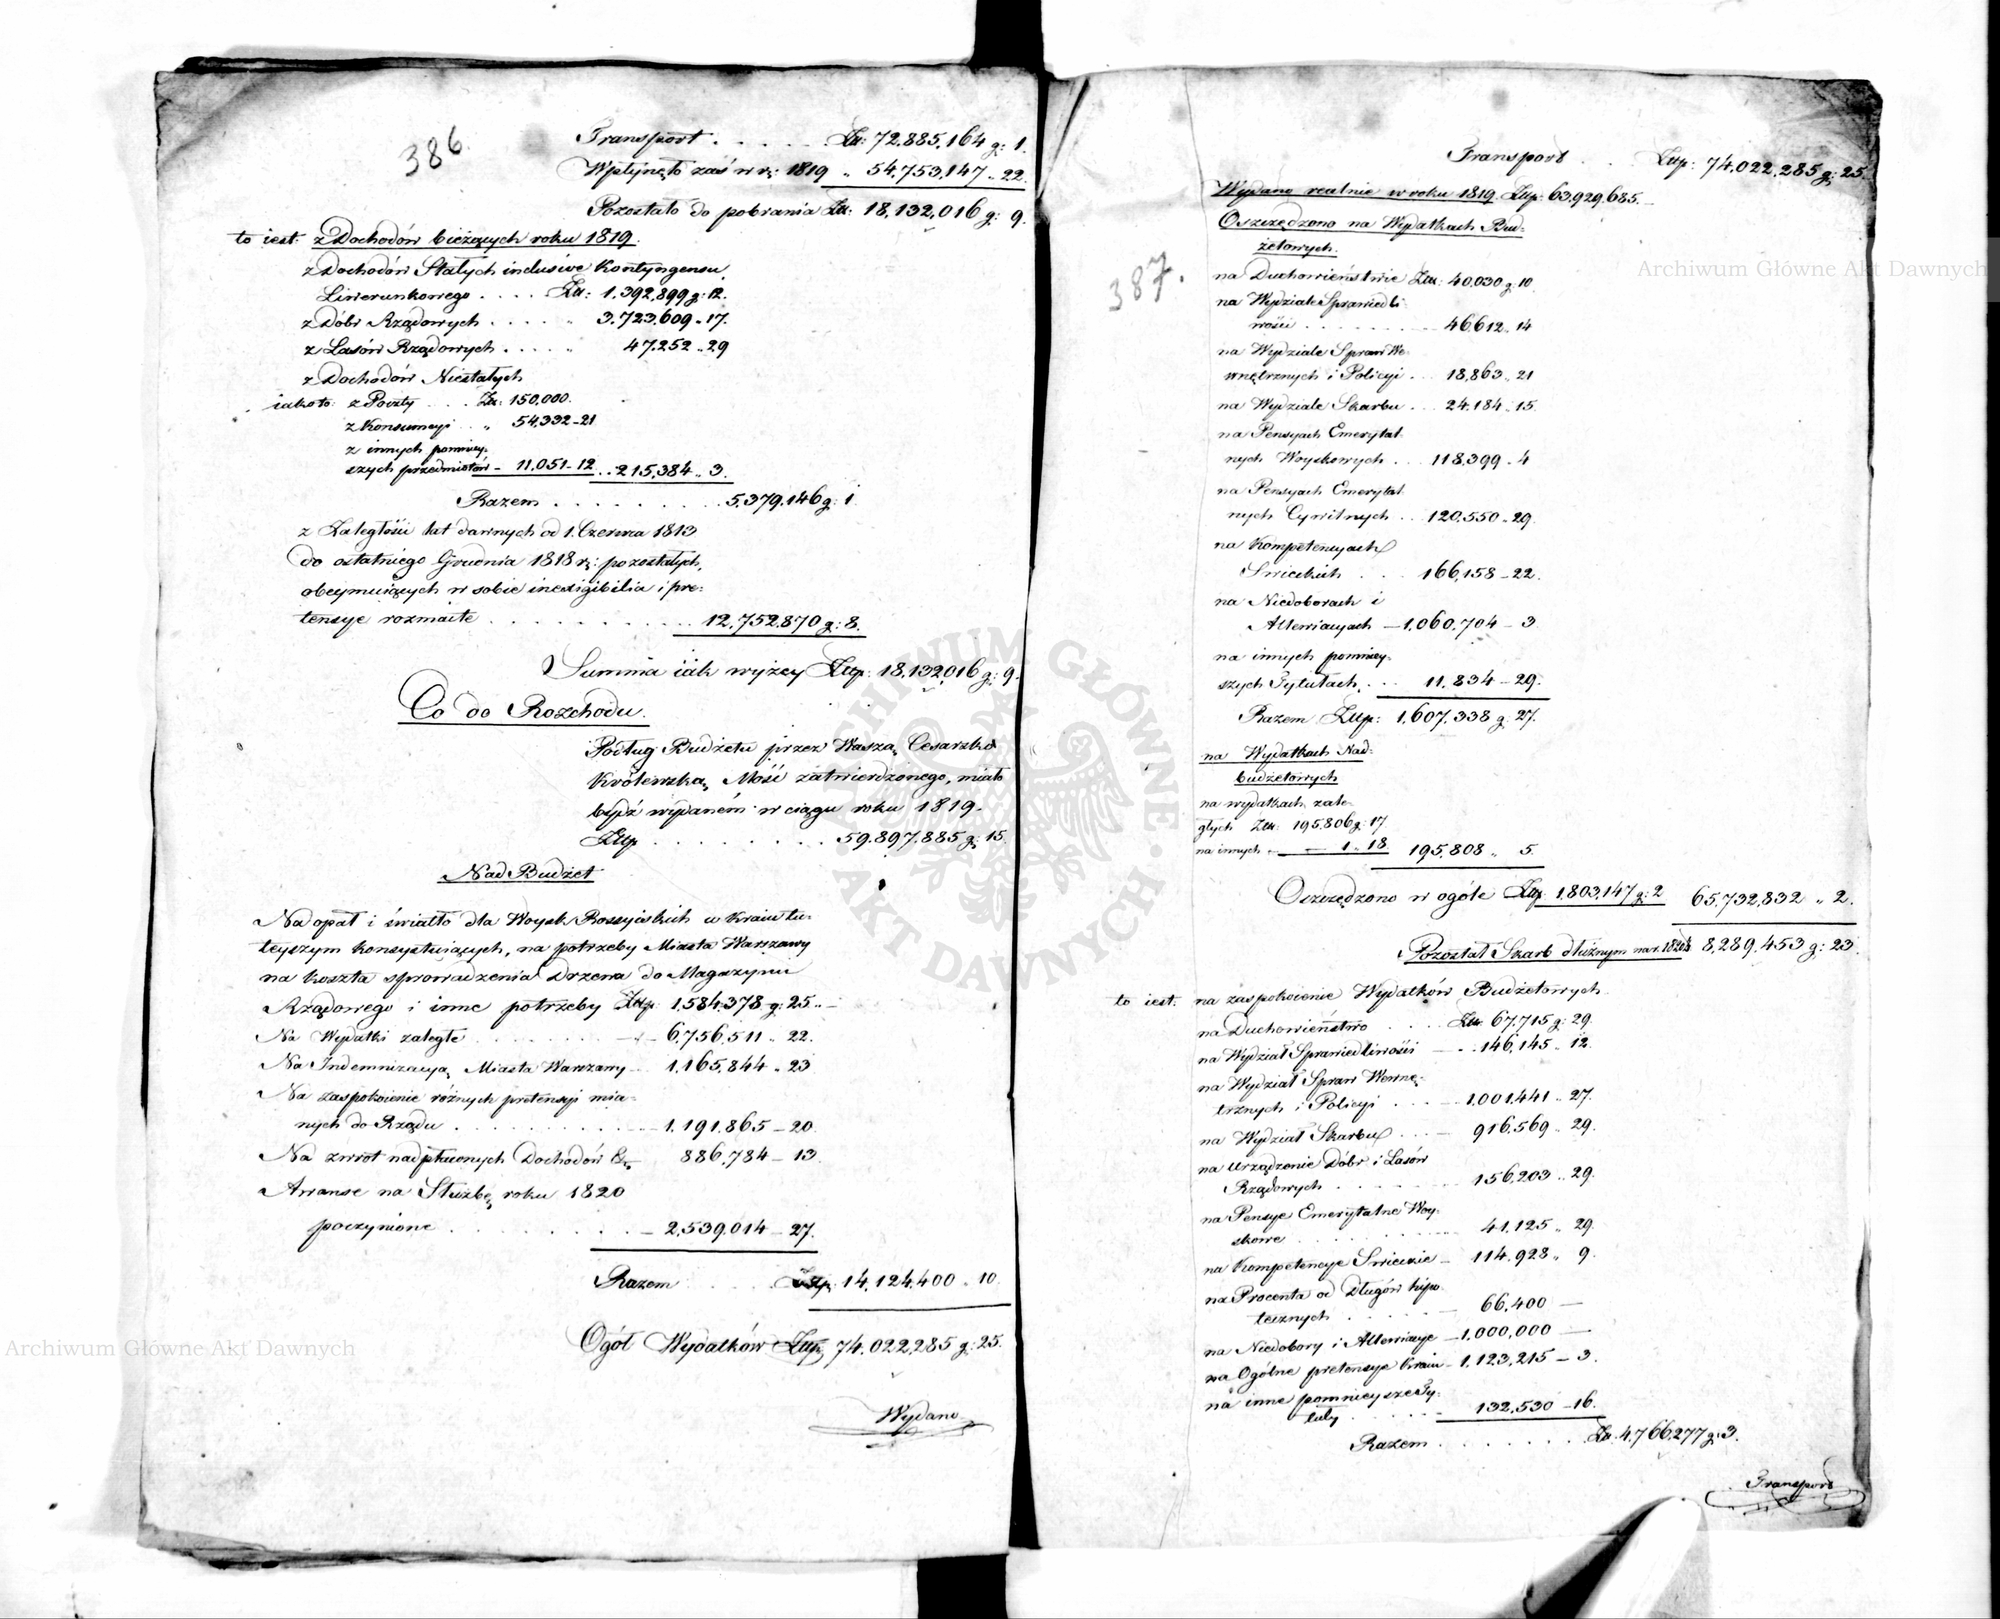 386.
Transport . . . . . Zł: 72,885,164 g: 1.
Wpłynęło zaś w r: 1819 „ 54,753,147 „ 22.
Pozostało do pobrania Zł: 18,132,016 g: 9.
to iest: z Dochodów bieżących roku 1819.
z Dochodów Stałych inclusive Kontyngensu
Liwerunkowego . . . . Zł: 1,392,899 g: 12.
z Dóbr Rządowych . . . . „ 3,723,609 „ 17.
z Lasów Rządowych . . . . „ 47,252 „ 29
z Dochodów Niestałych
iakoto: z Poczty . . . Zł: 150,000.
z Konsumcyi . . „ 54,332 – 21
z innych pomniey-
szych przedmiotów – 11,051 – 12 . . 215,384 „ 3.
Razem . . . . . . . . . 5,379,146 g: 1.
z Zaległości lat dawnych od 1. Czerwca 1813
do ostatniego Grudnia 1818 r: pozostałych,
obeymuiących w sobie inexigibilia i pre-
tensye rozmaite . . . . . . . . . . 12,752,870 g: 8.
Summa iak wyżey Złp: 18,132,016 g: 9.
Co do Rozchodu.
Podług Budżetu przez Waszą Cesarsko
Królewską Mość zatwierdzonego, miało
bydź wydaném w ciągu roku 1819.
Złp . . . . . . . . 59,897,885 g: 15.
Nad Budżet
Na opał i światło dla Woysk Rossyiskich w Kraiu tu-
teyszym konsystuiących, na potrzeby Miasta Warszawy
na koszta sprowadzenia Drzewa do Magazynu
Rządowego i inne potrzeby Złp: 1,584,378 g: 25 „ –
Na Wydatki zaległe . . . . . . . – 6,756,511 „ 22.
Na Indemnizacyą Miasta Warszawy – 1,165,844 „ 23
Na zaspokoienie różnych pretensyi mia-
nych do Rządu . . . . . . . . . – 1,191,865 – 20.
Na zwrot nadpłaconych Dochodów &c 886,784 – 13.
Awanse na Służbę roku 1820
poczynione . . . . . . . . – 2,539,014 – 27.
Razem . . . . . Złp: 14,124,400 „ 10.
Ogół Wydatków Złp: 74,022,285 g: 25.
Wydano
387.
Transport . . . Złp: 74,022,285 g: 25.
Wydano realnie w roku 1819. Złp: 63,929,685. –
Oszczędzono na Wydatkach Bud-
żetowych.
na Duchowieństwie Zł: 40,030 g: 10
na Wydziale Sprawiedli-
wości . . . . . . . 46612 „ 14
na Wydziale Spraw We-
wnętrznych i Policyi . . . 18,863 „ 21
na Wydziale Skarbu . . . 24,184 „ 15.
na Pensyach Emerytal-
nych Woyskowych . . . 118,399 „ 4
na Pensyach Emerytal-
nych Cywilnych . . . 120,550 „ 29.
na Kompetencyach
Swieckich . . . 166,158 – 22.
na Niedoborach i
Allewiacyach – 1,060,704 – 3
na innych pomniey-
szych Tytułach . . . 11,834 – 29.
Razem Złp: 1,607,338 g: 27.
na Wydatkach Nad-
budżetowych
na wydatkach zale-
głych Zł: 195,806 g: 17
na innych – – 1 „ 18. 195,808 „ 5.
Oszczędzono w ogóle Złp: 1,803,147 g: 2 65,732,832 „ 2.
Pozostał Skarb dłużnym na r. 1820 8,289,453 g: 23.
to iest: na zaspokoienie Wydatków Budżetowych
na Duchowieństwo . . . . Zł: 67,715 g: 29.
na Wydział Sprawiedliwości – . 146,145 „ 12.
na Wydział Spraw Wewnę-
trznych i Policyi . . . – 1,001,441 „ 27.
na Wydział Skarbu . . . – 916,569 „ 29.
na Urządzenie Dóbr i Lasów
Rządowych . . . . . . . 156,203 „ 29.
na Pensye Emerytalne Woy-
skowe . . . . . . . . . 41,125 „ 29.
na Kompetencye Swieckie – 114,928 „ 9.
na Procenta od Długów hipo-
tecznych . . . . . – 66,400 –
na Niedobory i Allewiacye – 1,000,000 –
na Ogólne pretensye Kraiu – 1,123,215 – 3.
na inne pomnieysze Ty-
tuły . . . . . – 132,530 – 16.
Razem . . . . . . . Zł: 4,766,277 g: 3.
Transport
Archiwum Główne Akt Dawnych
Archiwum Główne Akt Dawnych
ARCHIWUM GŁÓWNE
AKT DAWNYCH